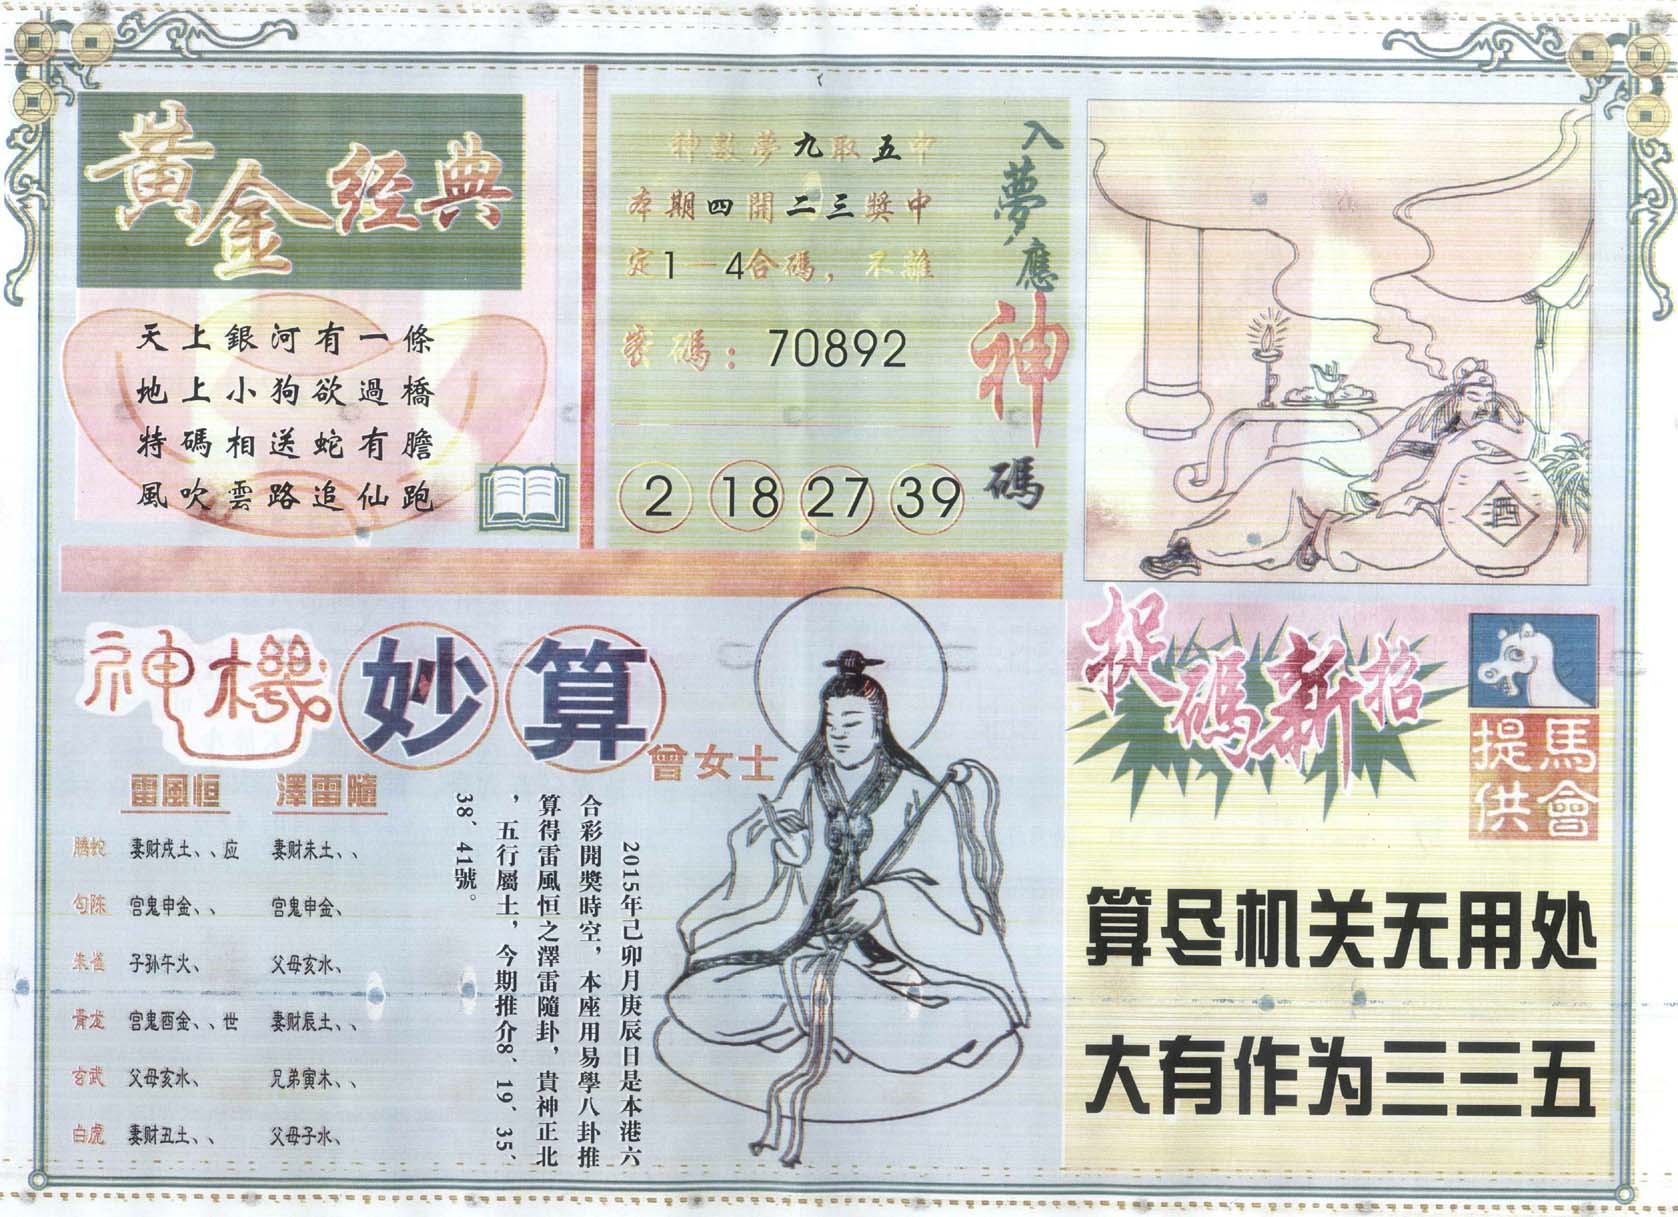 黃金經典
天上銀河有一條
地上小狗欲過橋
特碼相送蛇有膽
風吹雲路追仙跑
入夢應神碼
神數夢九取五中
本期四開二三獎中
定1—4合碼，不離
密碼：70892
2 18 27 39
酒
神機妙算
曾女士
雷風恒 澤雷隨
騰蛇 妻财戌土、、应 妻财未土、、
勾陈 官鬼申金、、 官鬼申金、
朱雀 子孙午火、 父母亥水、
青龙 官鬼酉金、、世 妻财辰土、、
玄武 父母亥水、 兄弟寅木、、
白虎 妻财丑土、、 父母子水、
2015年己卯月庚辰日是本港六
合彩開獎時空，本座用易學八卦推
算得雷風恒之澤雷隨卦，貴神正北
，五行屬土，今期推介8、19、35、
38、41號。
捉碼新招
馬會提供
算尽机关无用处
大有作为三三五